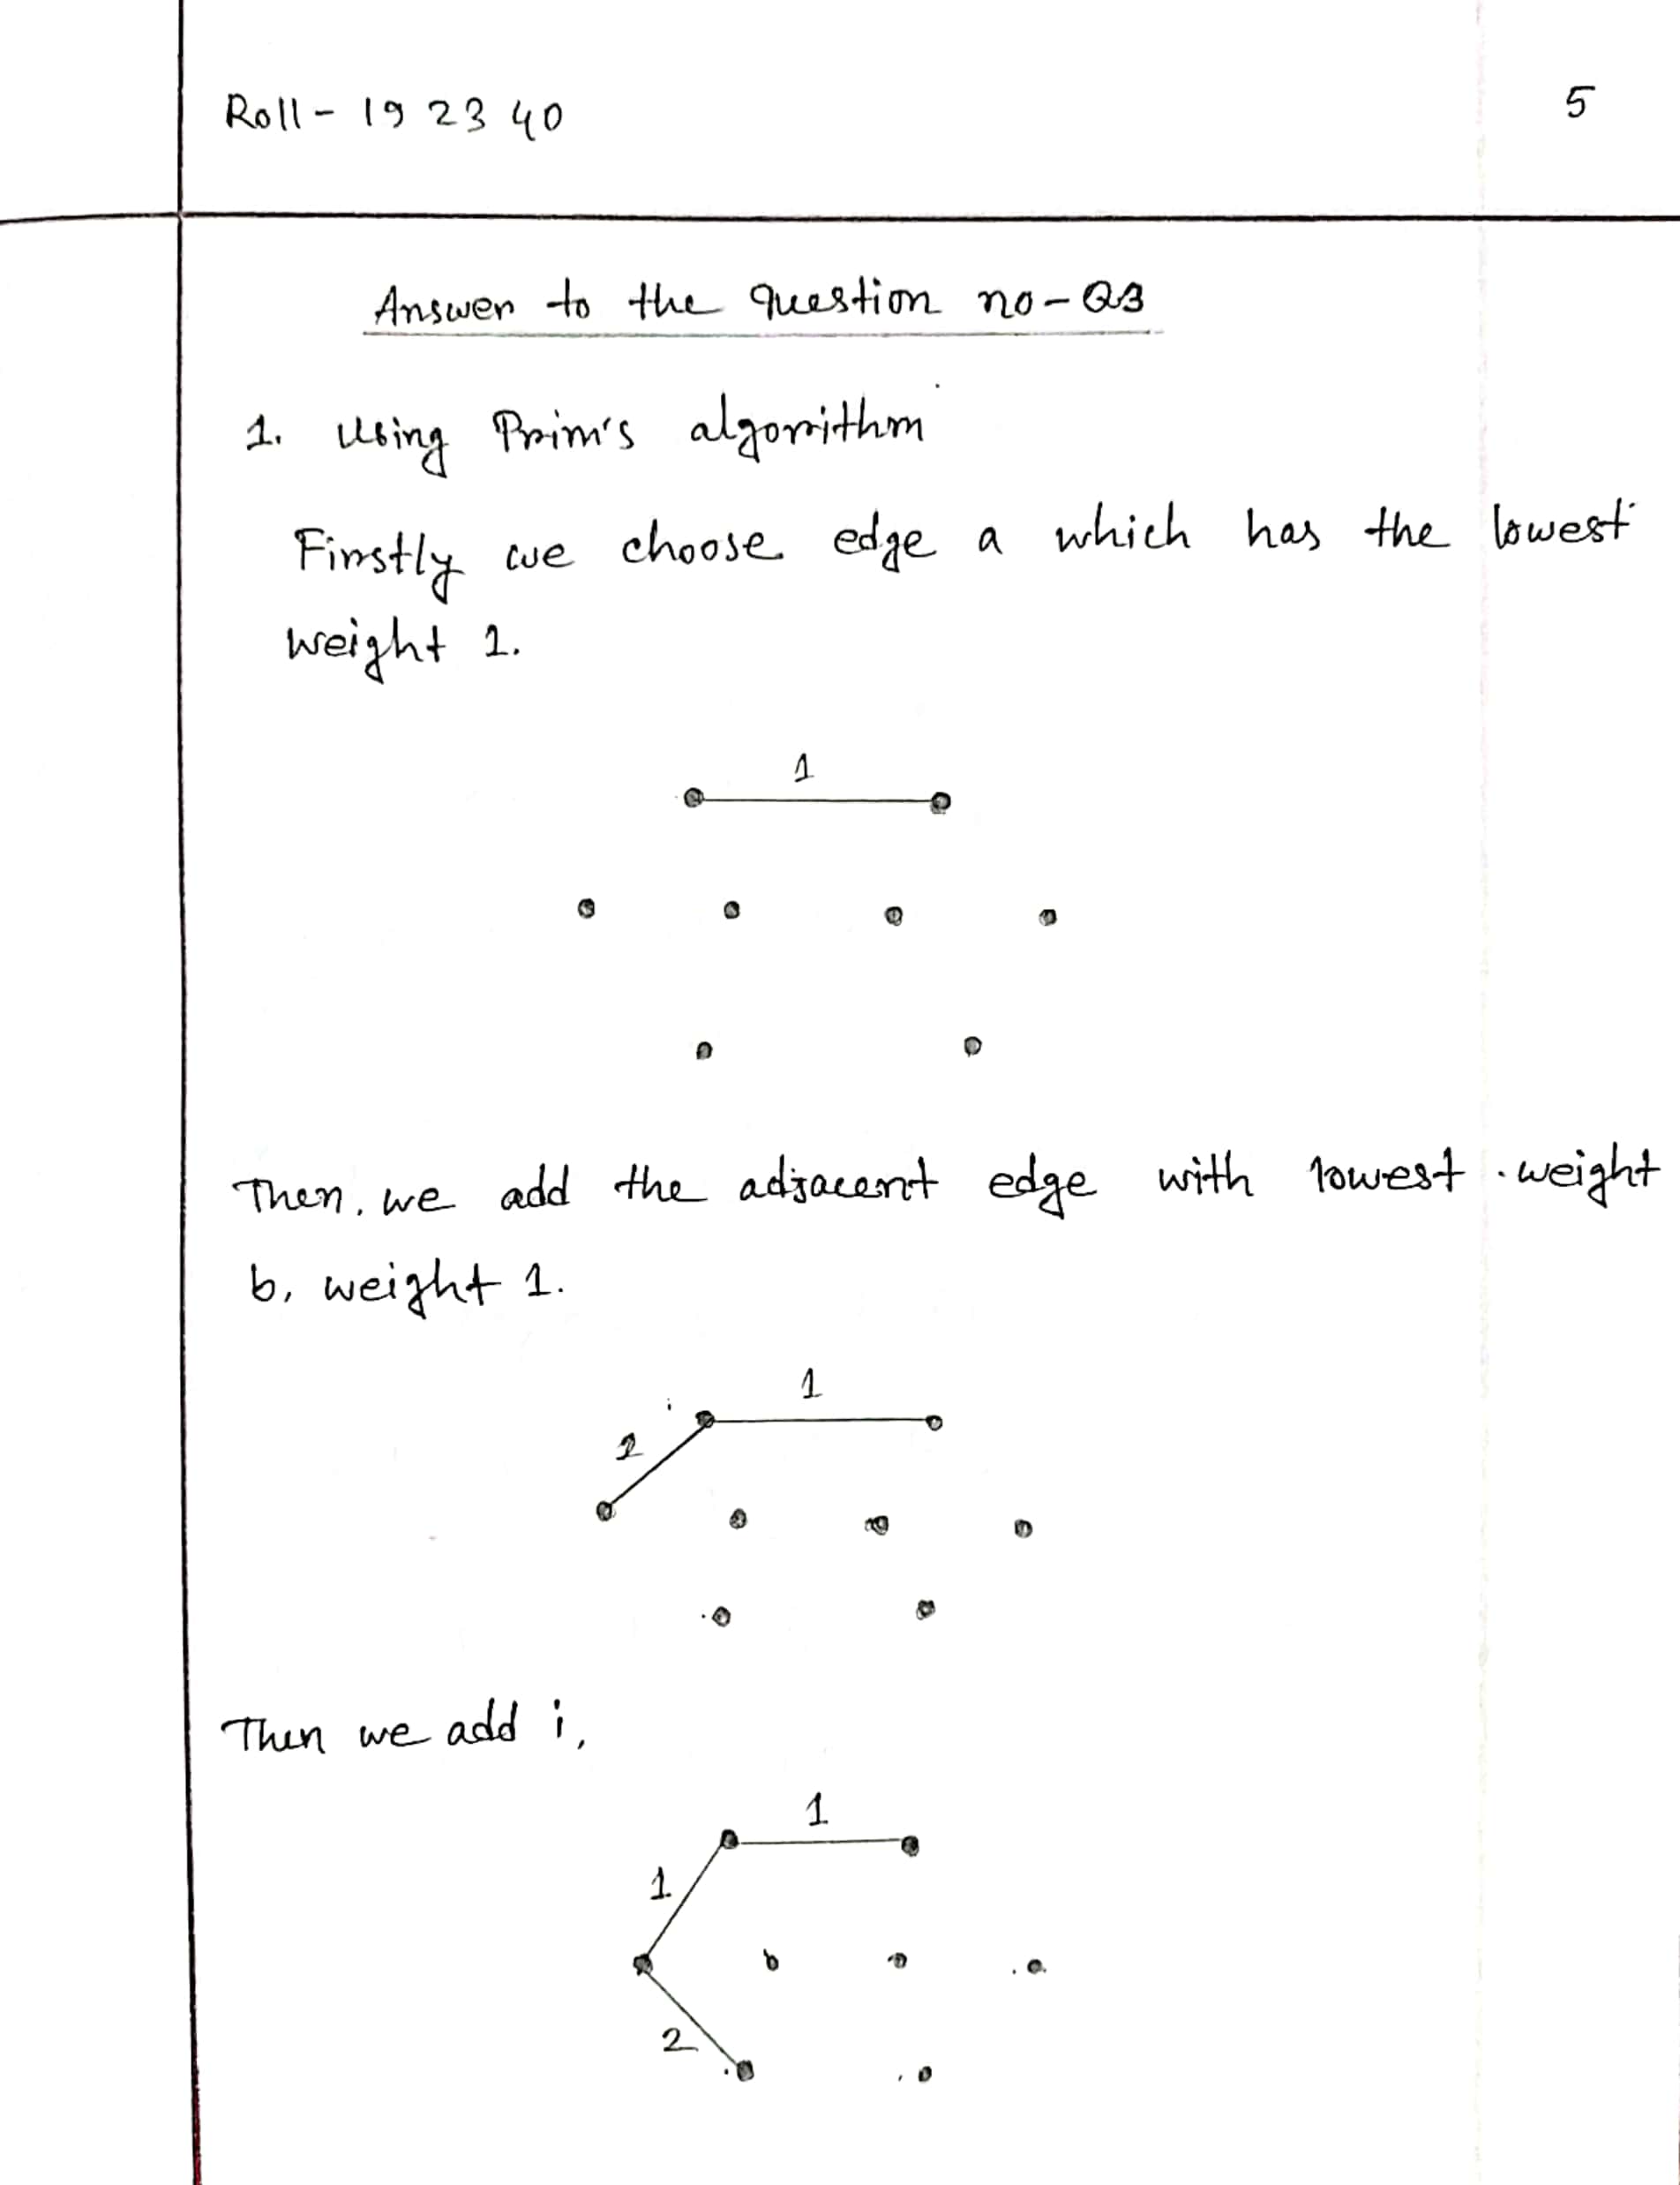 Roll - 19 23 40
5
Answer to the question no - Q3
1. Using Prim's algorithm
Firstly we choose edge a which has the lowest
weight 1.
1
Then, we add the adjacent edge with lowest weight
b, weight 1.
1
1
Then we add i,
1
1
2